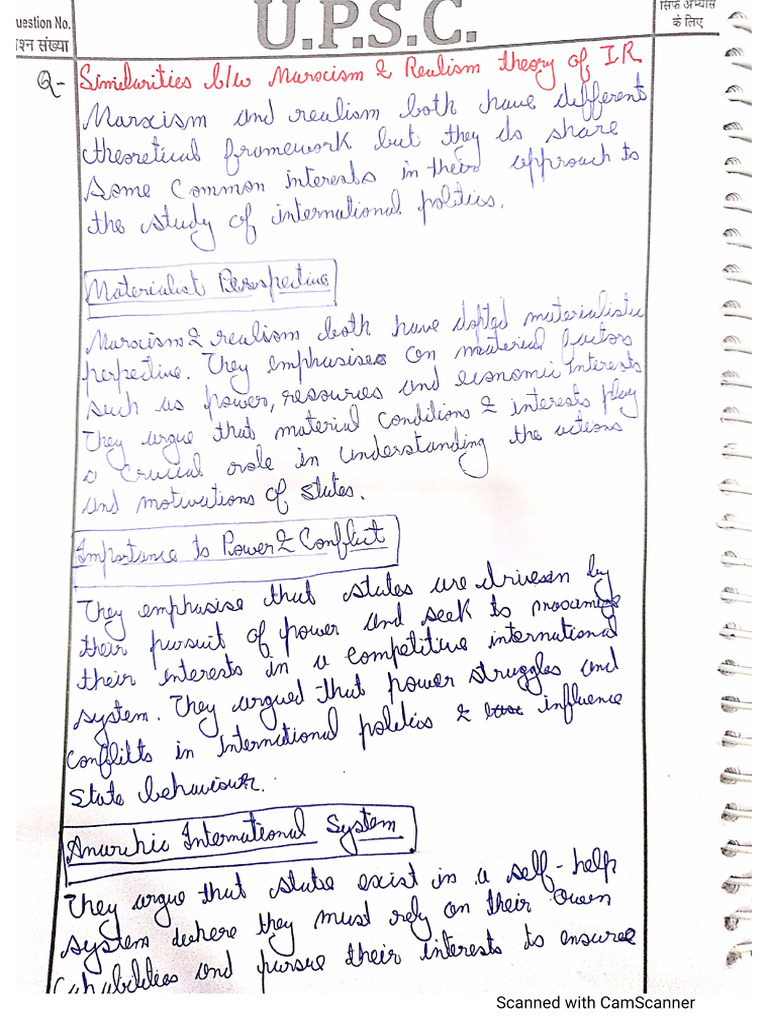 Question No.
प्रश्न संख्या
U.P.S.C.
सिर्फ अभ्यास
के लिए
Q- Similarities b/w Marxism & Realism theory of IR
Marxism and realism both have different
theoretical framework but they do share
some common interests in their approach to
the study of international politics.
Materialist Perspective
Marxism & realism both have dopted materialistic
perpective. They emphasises on material factors
such as power, resources and economic interests
They argue that material conditions & interests play
a crucial role in understanding the actions
and motivations of states.
Importance to Power & Conflict
They emphasise that states are driven by
their pursuit of power and seek to
their interests in a competitive international
system. They argued that power struggles and
conflitts in international politics & influence
state behaviour.
Anarchic International System
They argue that state exist in a self-help
system where they must rely on their own
capabilities and pursue their interests to ensure
Scanned with CamScanner